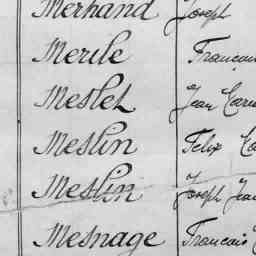 Merhand Joseph
Merile Francois
Meslet Jean
Meslin Felix
Meslin Joseph Jean
Mesnage Francois